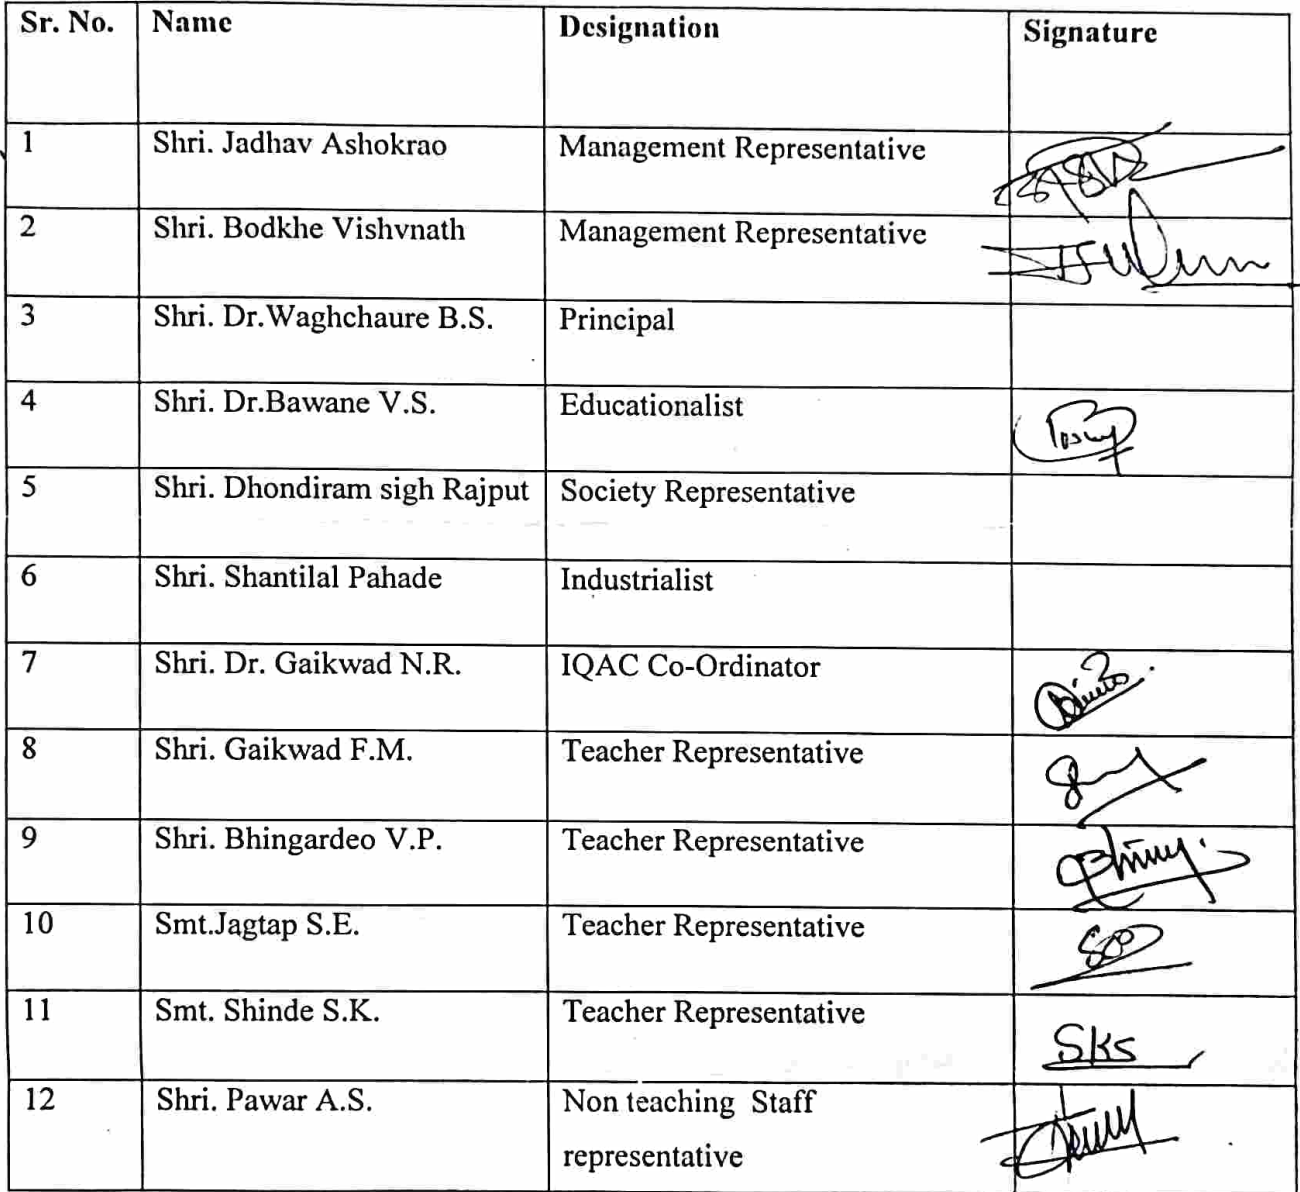 Sr. No. Name Designation Signature
1 Shri. Jadhav Ashokrao Management Representative
2 Shri. Bodkhe Vishvnath Management Representative
3 Shri. Dr.Waghchaure B.S. Principal
4 Shri. Dr.Bawane V.S. Educationalist
5 Shri. Dhondiram sigh Rajput Society Representative
6 Shri. Shantilal Pahade Industrialist
7 Shri. Dr. Gaikwad N.R. IQAC Co-Ordinator
8 Shri. Gaikwad F.M. Teacher Representative
9 Shri. Bhingardeo V.P. Teacher Representative
10 Smt.Jagtap S.E. Teacher Representative
11 Smt. Shinde S.K. Teacher Representative SKS
12 Shri. Pawar A.S. Non teaching Staff
representative